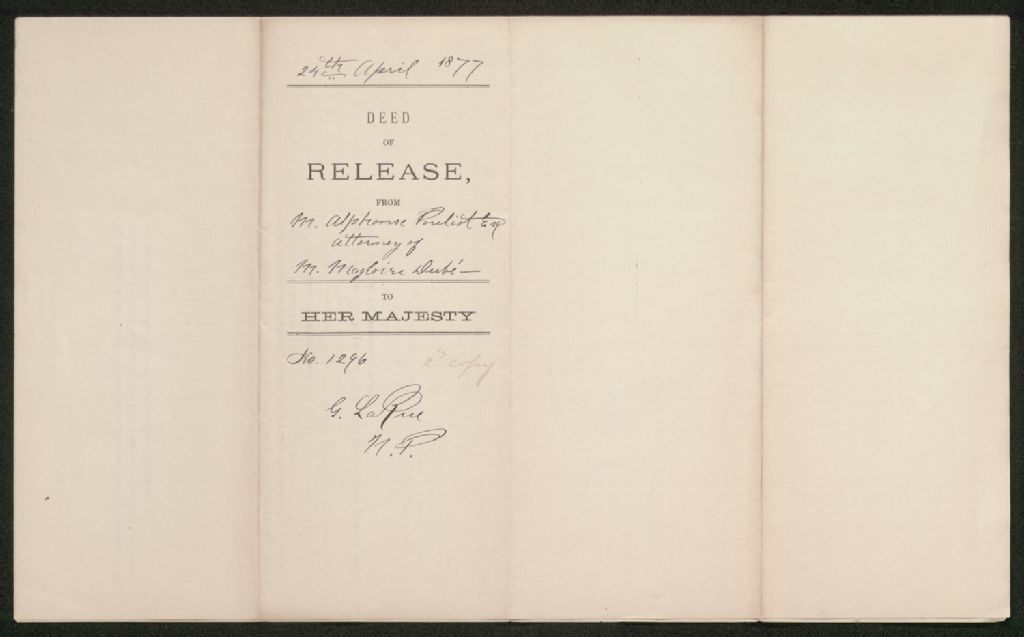 24th April 1877
DEED
OF
RELEASE,
FROM
M. Alphonse Pouliot Esq
attorney of
M. Magloire Dubé —
TO
HER MAJESTY
No. 1296 2d copy
G. LaRue
N.P.